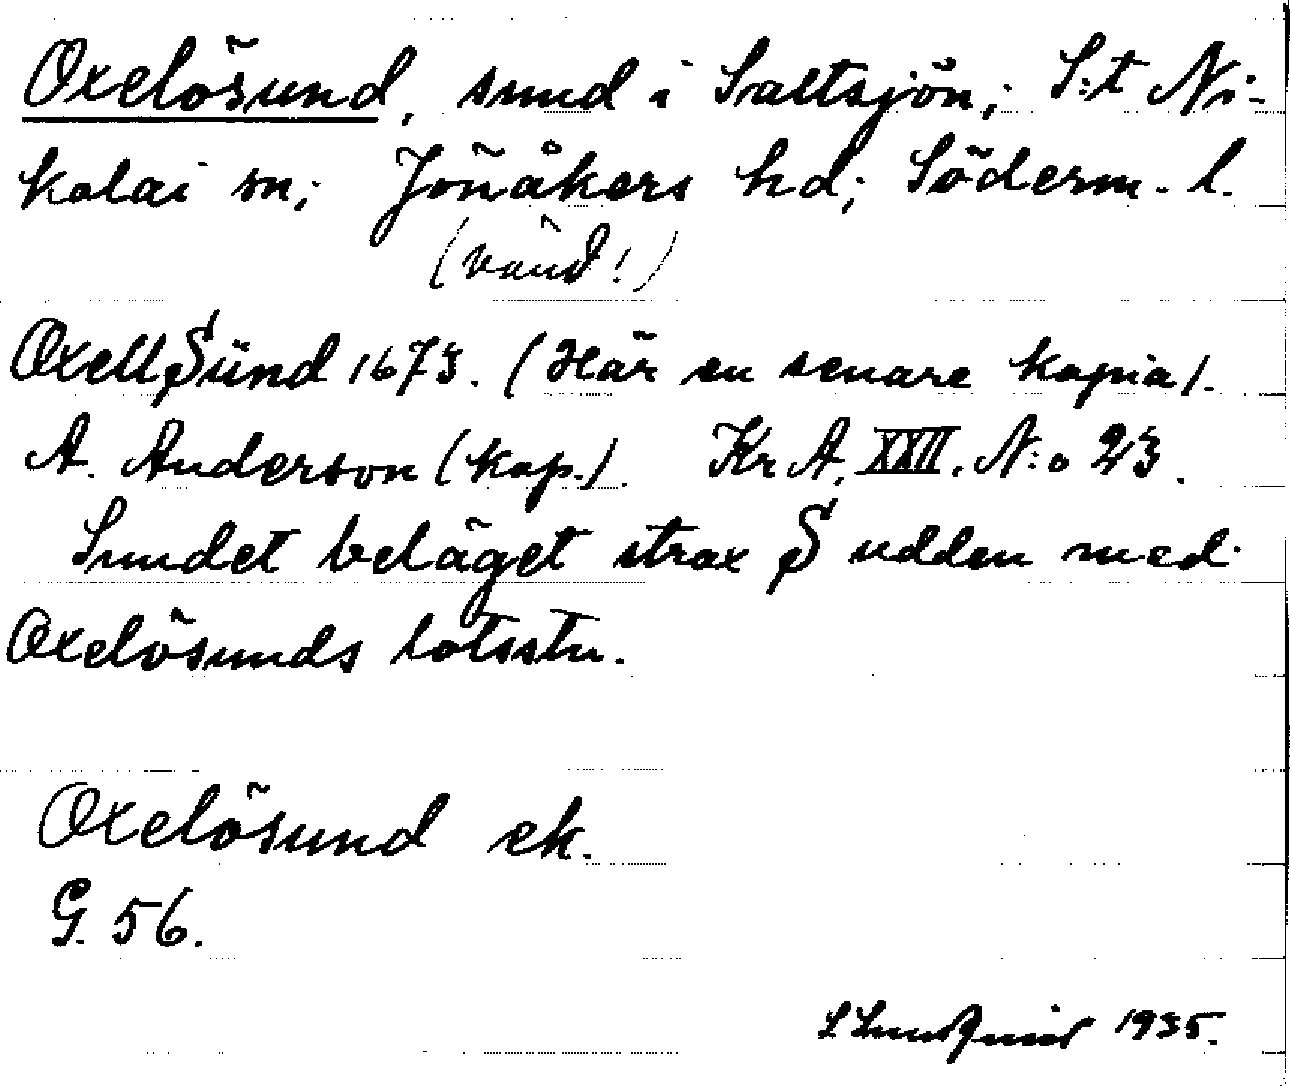 Oxelösund, sund i Saltsjön; S:t Ni-
kolai sn; Jönåkers hd; Söderm. l.
(vänd!)
Oxellßünd 1673. (Här en senare kopia).
A. Anderson (kop.). Kr A. XXII. N:o 23.
Sundet beläget strax S udden med
Oxelösunds lotsstn.
Oxelösund ek.
G. 56.
S Lundqvist 1935.